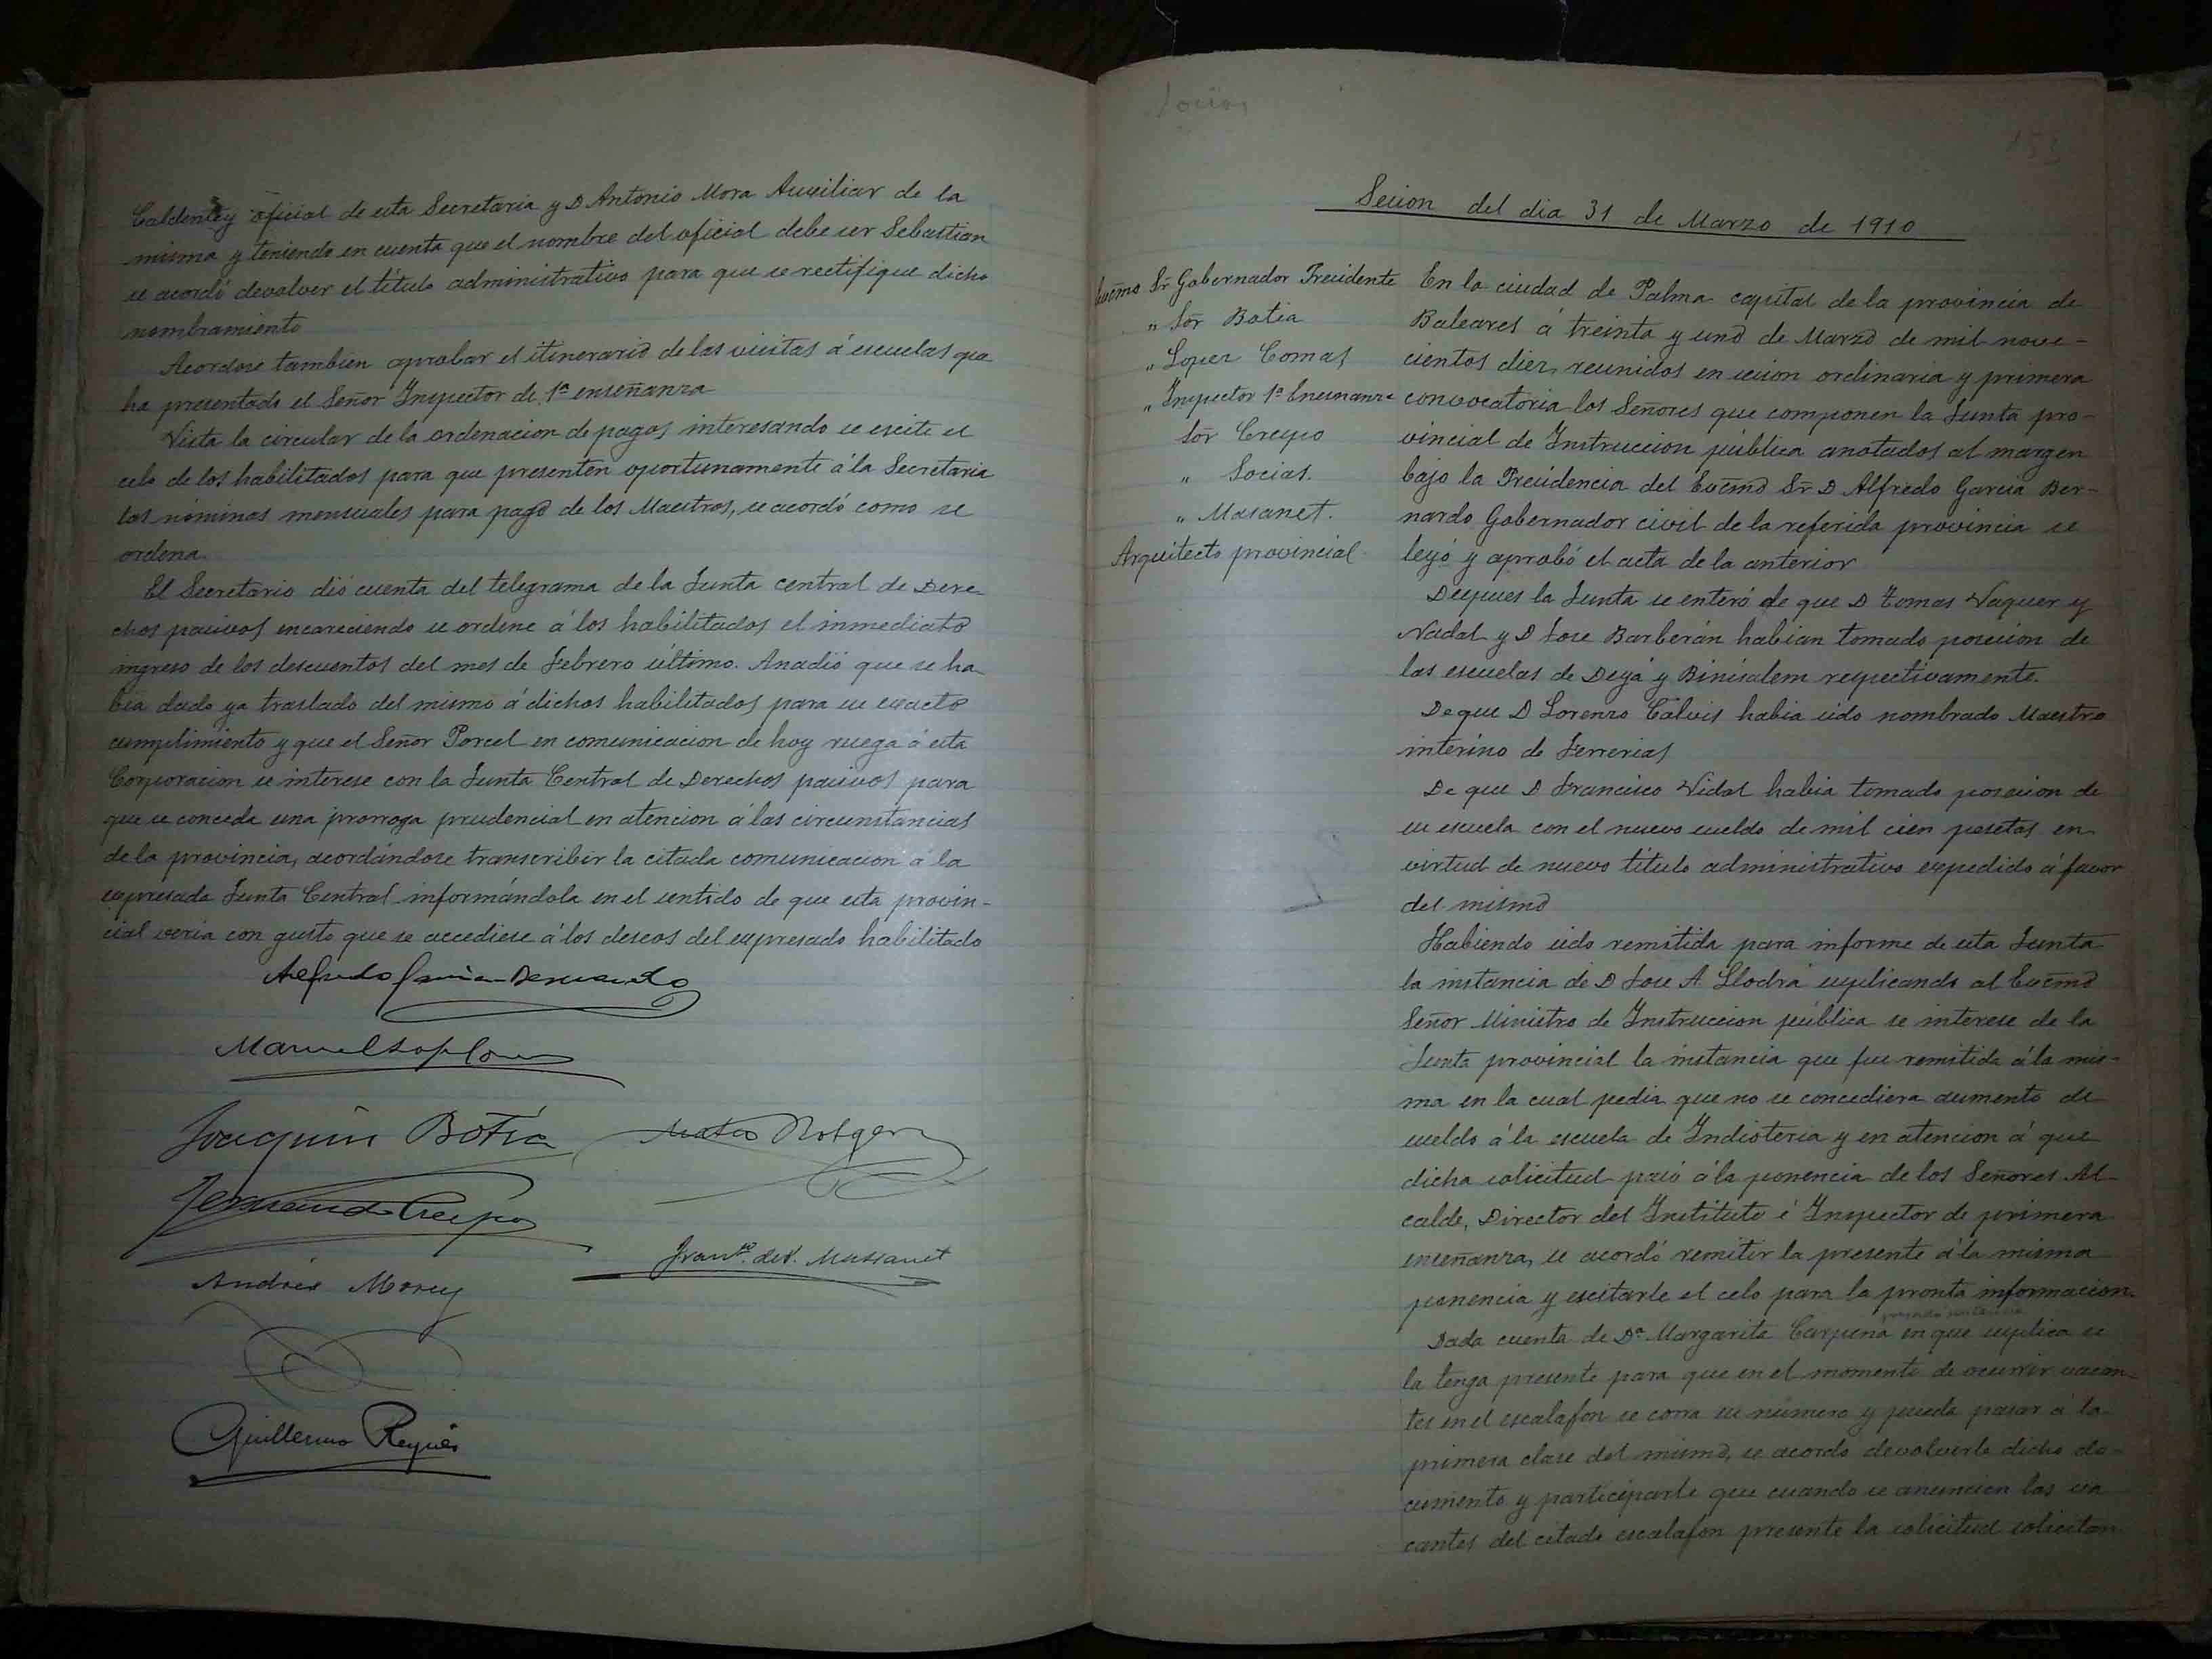 Caldentey oficial de esta Secretaria y D Antonio Mora Auxiliar de la
misma y teniendo en cuenta que el nombre del oficial debe ser Sebastian
se acordó devolver el título administrativo para que se rectifique dicho
nombramiento
Acordose tambien aprobar el itinerario de las visitas á escuelas que
ha presentado el Señor Inspector de 1ª enseñanza
Vista la circular de la ordenacion de pagos interesando se escite el
celo de los habilitados para que presenten oportunamente á la Secretaria
las nóminas mensuales para pago de los Maestros, se acordó como se
ordena.
El Secretario dió cuenta del telegrama de la Junta central de Dere-
chos pasivos encareciendo se ordene á los habilitados el inmediato
ingreso de los descuentos del mes de Febrero último. Anadió que se ha-
bia dado ya traslado del mismo á dichos habilitados para su exacto
cumplimiento y que el Señor Porcel en comunicacion de hoy ruega á esta
Corporacion se interese con la Junta Central de Derechos pasivos para
que se conceda una prorroga prudencial en atencion á las circunstancias
de la provincia, acordándose transcribir la citada comunicacion á la
expresada Junta Central informándola en el sentido de que esta provin-
cial veria con gusto que se accediese á los deseos del expresado habilitado
Alfredo García-Bernardo
Joaquin Botia
Mateo Rotger
Fernando Crespo
Franco. de S. Massanet
Andrés Morey
Guillermo Reynés
Socias
153
Sesion del dia 31 de Marzo de 1910
Excmo Sr Gobernador Presidente
" Sor Botia
" Lopez Comas
" Inspector 1ª Ensenanza
Sor Crespo
" Socias.
" Masanet.
Arquitecto provincial
En la ciudad de Palma capital de la provincia de
Baleares á treinta y uno de Marzo de mil nove-
cientos diez, reunidos en sesion ordinaria y primera
convocatoria los Señores que componen la Junta pro-
vincial de Instruccion pública anotados al margen
bajo la Presidencia del Excmo Sr D Alfredo Garcia Ber-
nardo Gobernador civil de la referida provincia se
leyó y aprobó el acta de la anterior
Despues la Junta se enteró de que D Tomas Vaquer y
Nadal y D Jose Barberán habian tomado posesion de
las escuelas de Deyá y Binisalem respectivamente.
De que D Lorenzo Galvis habia sido nombrado Maestro
interino de Ferrerias
De que D Francisco Vidal habia tomado posesion de
su escuela con el nuevo sueldo de mil cien pesetas en
virtud de nuevo título administrativo expedido á favor
del mismo
Habiendo sido remitida para informe de esta Junta
la instancia de D Jose A Llodrá suplicando al Excmo
Señor Ministro de Instruccion pública se interese de la
Junta provincial la instancia que fue remitida á la mis-
ma en la cual pedia que no se concediera aumento de
sueldo á la escuela de Indioteria y en atencion á que
dicha solicitud pasó á la ponencia de los Señores Al-
calde, Director del Instituto é Inspector de primera
enseñanza, se acordó remitir la presente á la misma
ponencia y escitarle el celo para la pronta informacion.
Dada cuenta de Dª Margarita Carpena en que suplica se
la tenga presente para que en el momento de ocurrir vacan-
tes en el escalafon se corra su número y pueda pasar á la
primera clase del mismo, se acordo devolverle dicho do-
cumento y participarle que cuando se anuncien las va
cantes del citado escalafon presente la solicitud solicitan